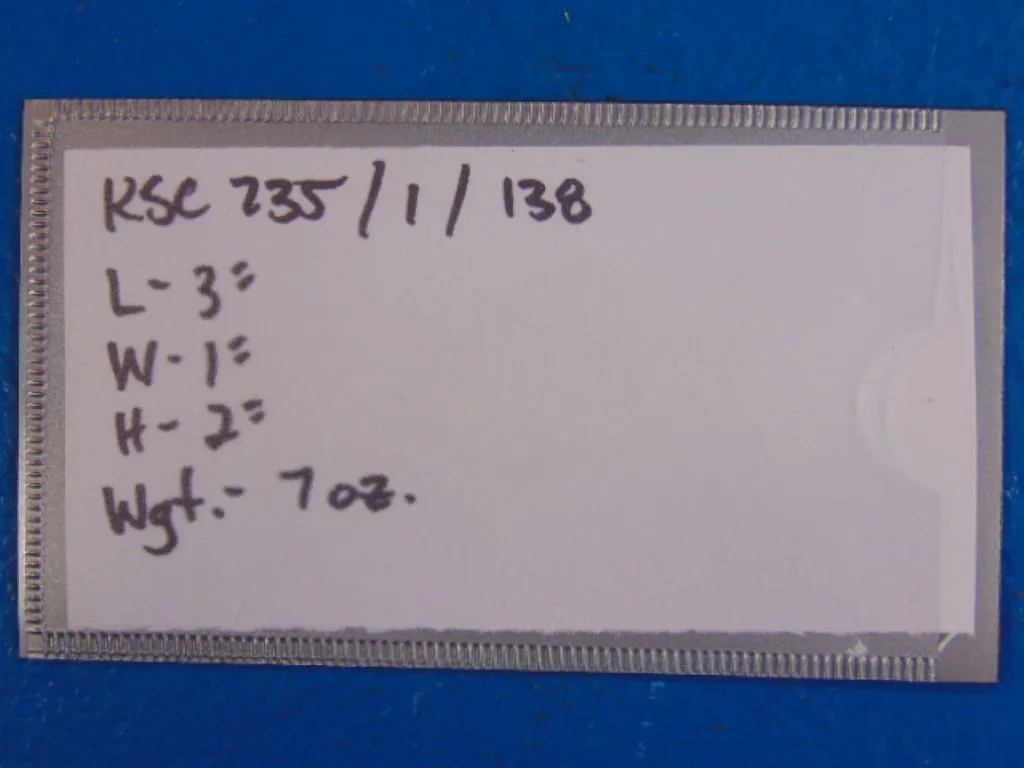 KSC 235 / 1 / 138
L - 3"
W - 1"
H - 2"
Wgt. - 7 oz.